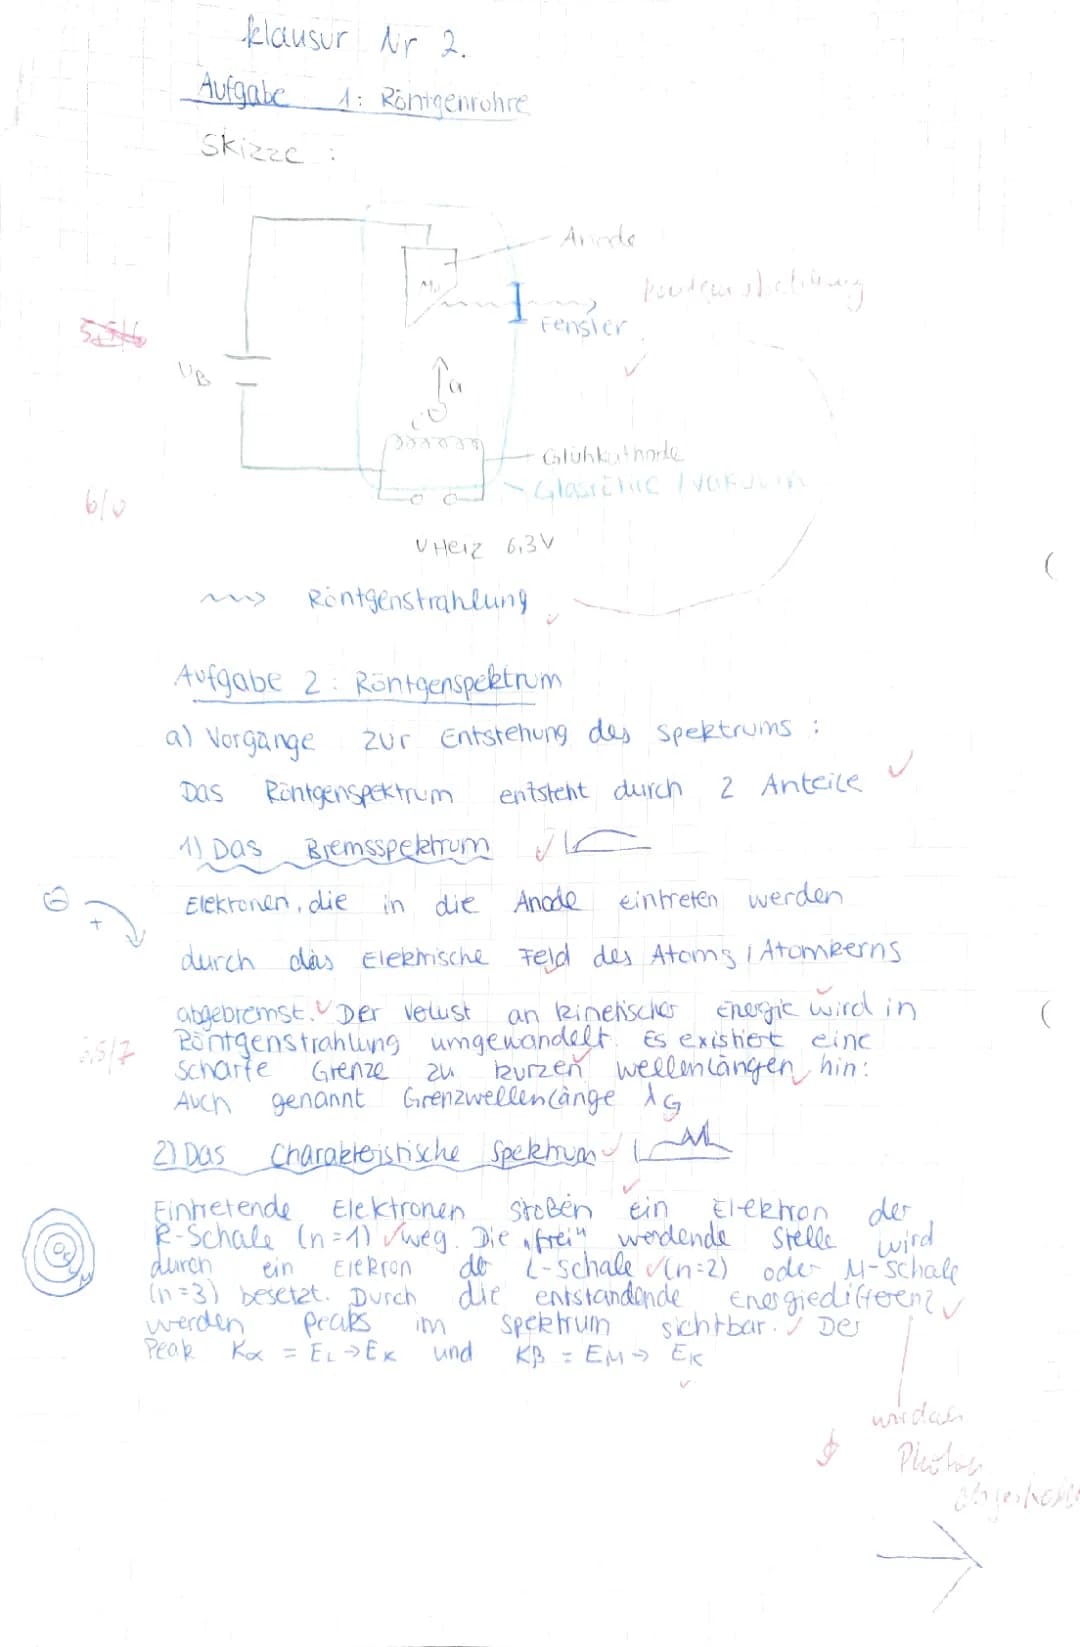 Klausur Nr 2.
Aufgabe 1: Röntgenröhre
Skizze :
Anode
Mo
Fenster
UB
a
Glühkathode
Glasröhre / Vakuum
6/6
UHeiz 6,3V
Röntgenstrahlung
Aufgabe 2: Röntgenspektrum
a) Vorgänge zur Entstehung des Spektrums :
Das Röntgenspektrum entsteht durch 2 Anteile
1) Das Bremsspektrum
Elektronen, die in die Anode eintreten werden
durch das Elektrische Feld des Atoms / Atomkerns
abgebremst. Der Velust an kinetischer Energie wird in
Röntgenstrahlung umgewandelt. Es existiert eine
Scharfe Grenze zu kurzen wellenlängen hin:
Auch genannt Grenzwellenlänge λG
6,5/7
2) Das Charakteristische Spektrum
Eintretende Elektronen stoßen ein Elektron der
K-Schale (n=1) weg. Die "frei" werdende Stelle wird
durch ein Elekron der L-Schale (n=2) oder M-Schale
(n=3) besetzt. Durch die entstandende Energiedifferenz
werden peaks im Spektrum sichtbar. Der
Peak Kα = EL → EK und Kβ = EM → EK
werden
Photon